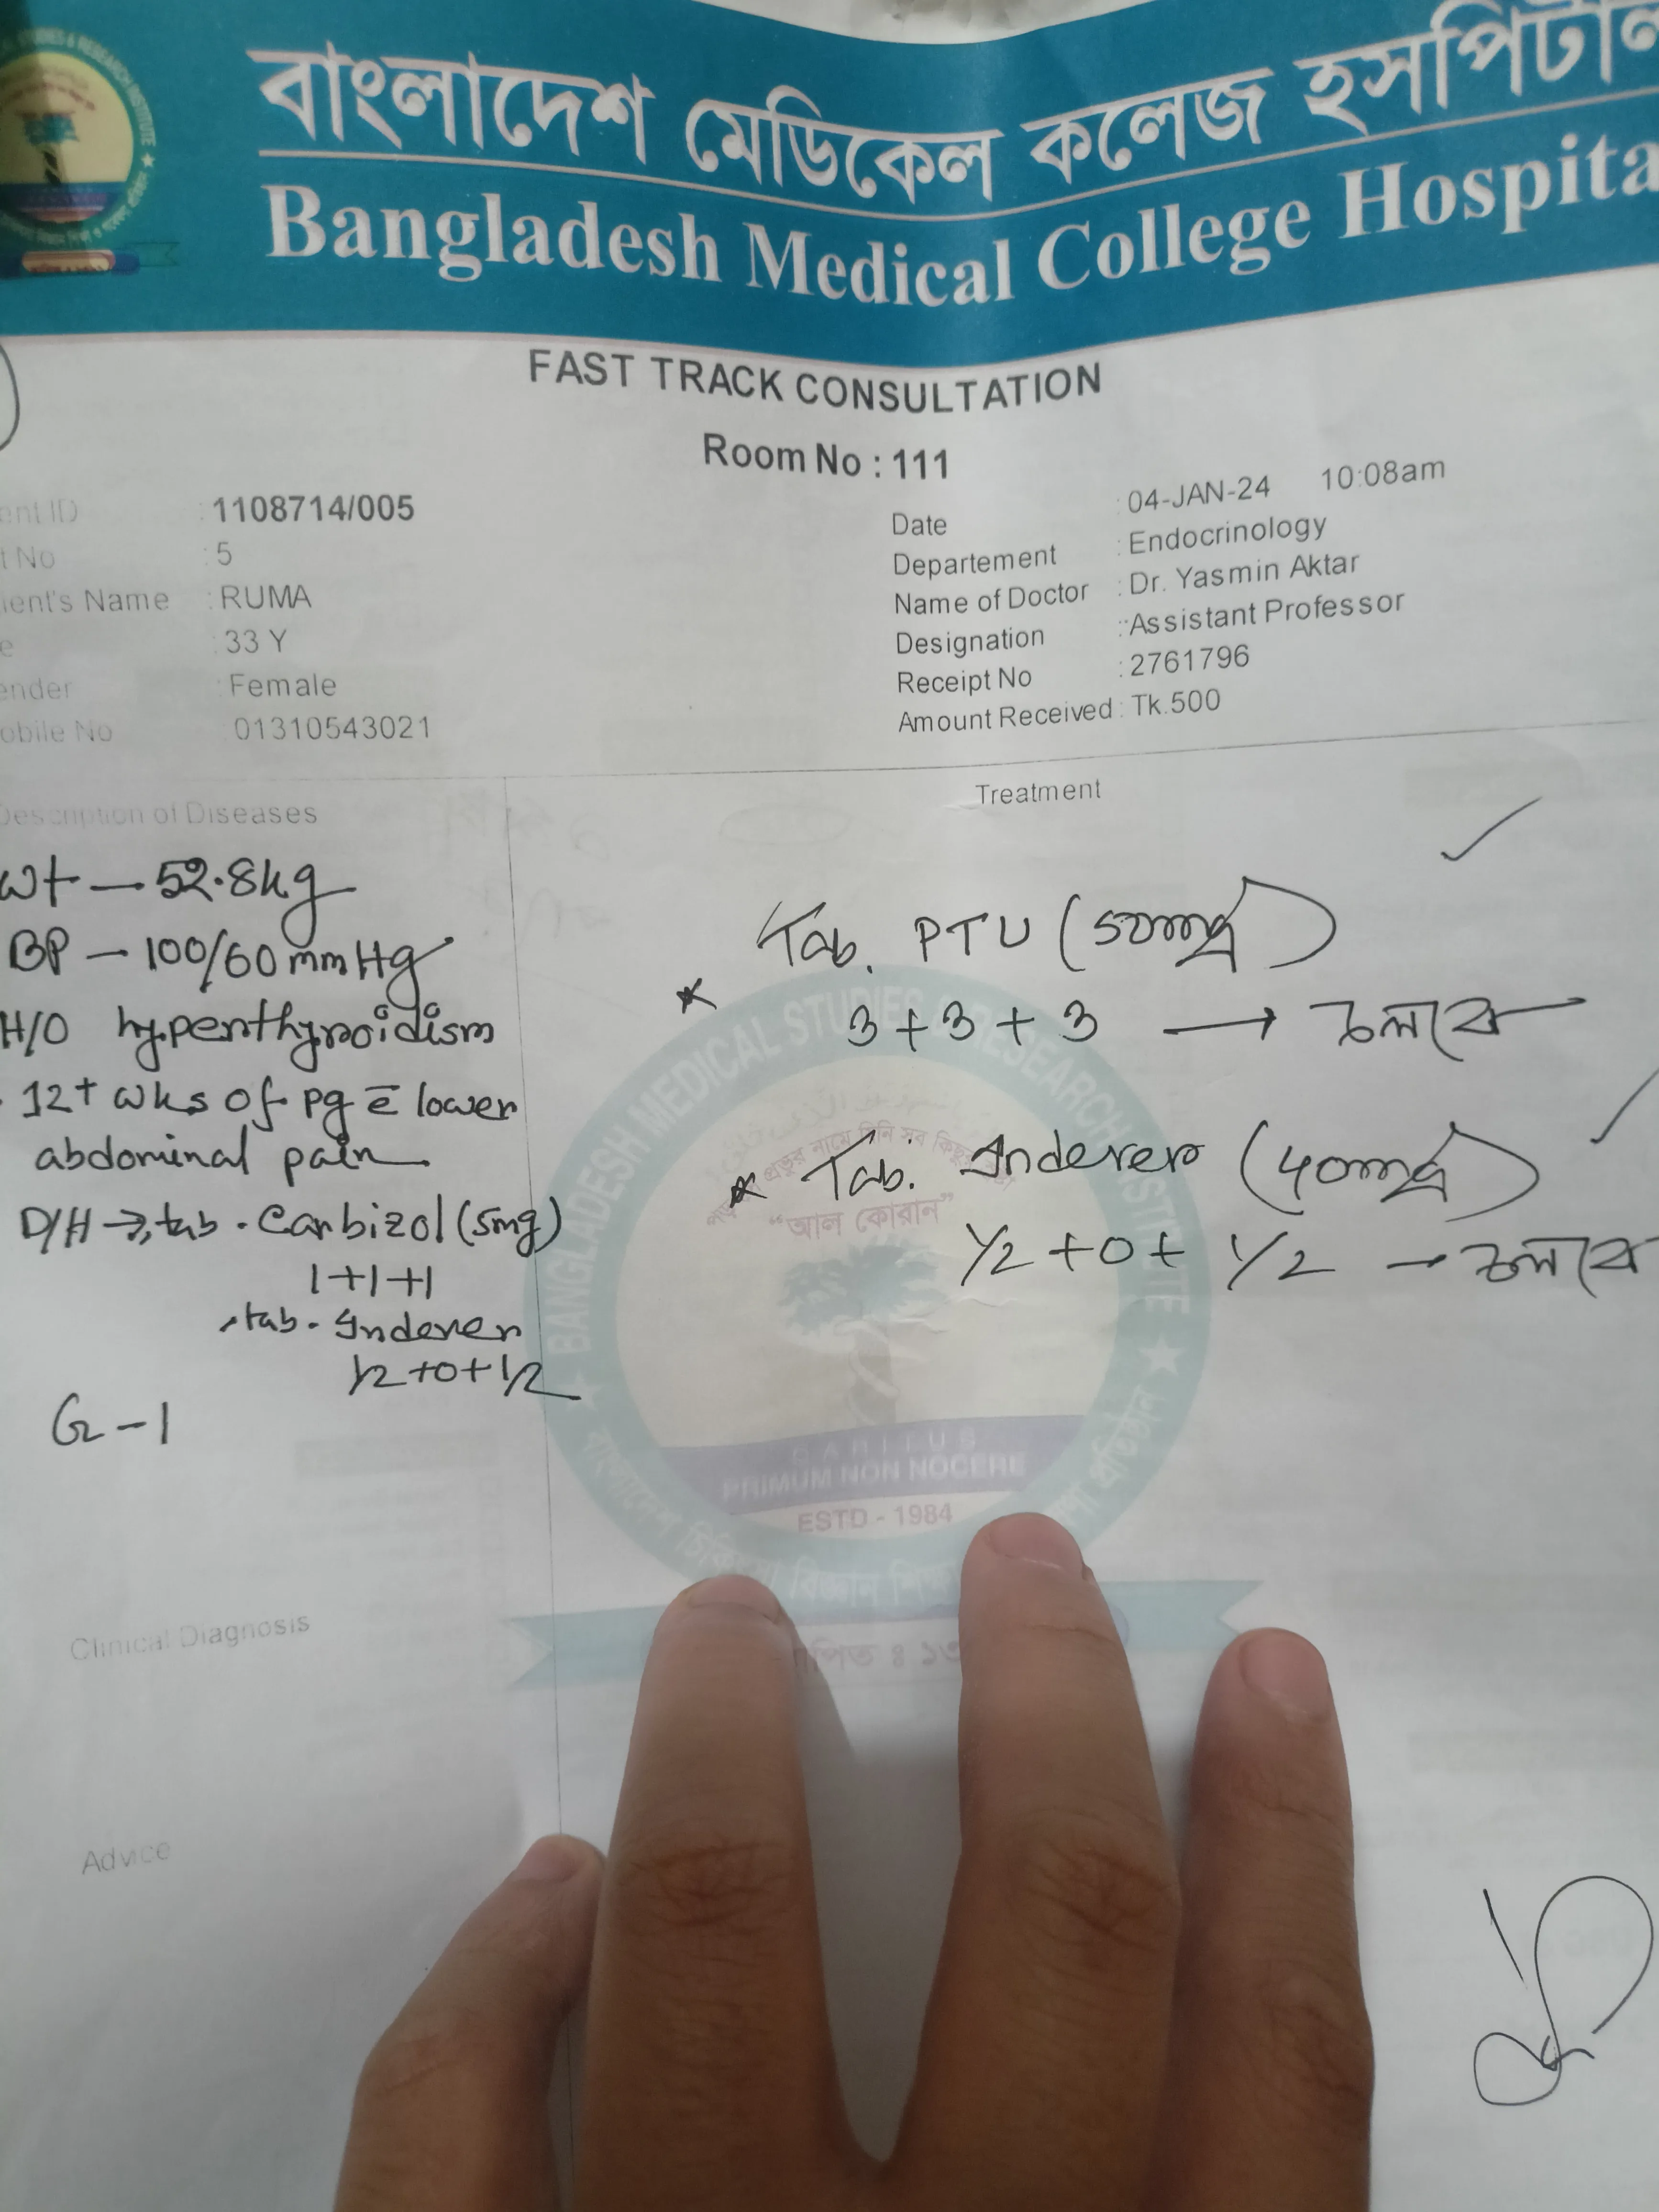 বাংলাদেশ মেডিকেল কলেজ হসপিটাল
Bangladesh Medical College Hospita
FAST TRACK CONSULTATION
Room No : 111
ent ID : 1108714/005
t No : 5
ient's Name : RUMA
e : 33 Y
ender : Female
obile No : 01310543021
Date : 04-JAN-24 10:08am
Departement : Endocrinology
Name of Doctor : Dr. Yasmin Aktar
Designation : Assistant Professor
Receipt No : 2761796
Amount Received : Tk.500
Description of Diseases
Wt — 52.8kg
BP — 100/60 mmHg
H/O hyperthyroidism
12+ wks of pg c̄ lower
abdominal pain
D/H → tab. Carbizol (5mg)
1+1+1
tab. Inderer
1/2+0+1/2
G-1
Clinical Diagnosis
Advice
Treatment
Tab. PTU (50mg)
3+3+3 → চলবে
Tab. Inderer (40mg)
1/2+0+1/2 → চলবে
BANGLADESH MEDICAL STUDIES & RESEARCH INSTITUTE
"আল কোরান"
CARITUS
PRIMUM NON NOCERE
ESTD - 1984